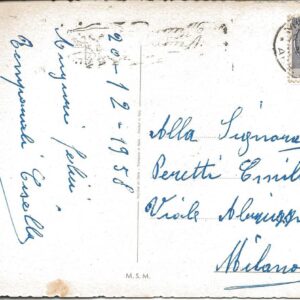 20-12-1958
Auguri felici
Temporali Gisella
Alla Signora
Peretti Emil
Viale Abruzzi
Milano
M.S.M.